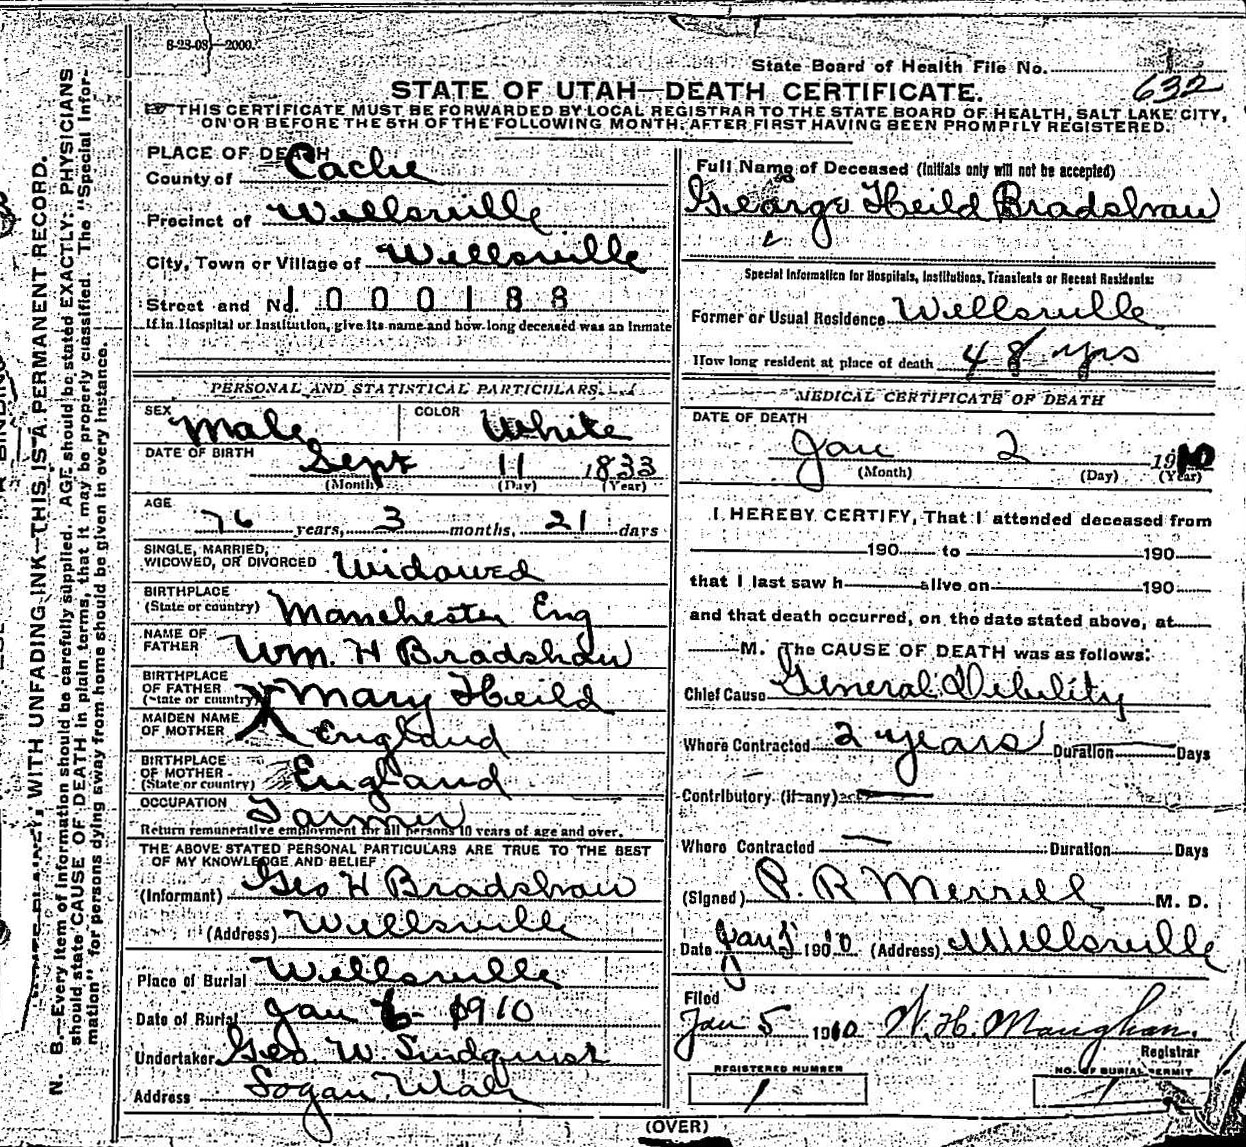 8-23-09—2000.
State Board of Health File No.
632
STATE OF UTAH—DEATH CERTIFICATE.
THIS CERTIFICATE MUST BE FORWARDED BY LOCAL REGISTRAR TO THE STATE BOARD OF HEALTH, SALT LAKE CITY,
ON OR BEFORE THE 5TH OF THE FOLLOWING MONTH, AFTER FIRST HAVING BEEN PROMPTLY REGISTERED.
PLACE OF DEATH
County of Cache
Precinct of Wellsville
City, Town or Village of Wellsville
Street and No. 1000188
If in Hospital or Institution, give its name and how long deceased was an inmate
PERSONAL AND STATISTICAL PARTICULARS.
SEX Male COLOR White
DATE OF BIRTH Sept 11 1833
(Month) (Day) (Year)
AGE 76 years, 3 months, 21 days
SINGLE, MARRIED,
WIDOWED, OR DIVORCED Widowed
BIRTHPLACE
(State or country) Manchester Eng
NAME OF
FATHER Wm. H Bradshaw
BIRTHPLACE
OF FATHER
(State or country) Mary Heild
MAIDEN NAME
OF MOTHER England
BIRTHPLACE
OF MOTHER
(State or country) England
OCCUPATION Farmer
Return remunerative employment for all persons 10 years of age and over.
THE ABOVE STATED PERSONAL PARTICULARS ARE TRUE TO THE BEST
OF MY KNOWLEDGE AND BELIEF
(Informant) Geo H Bradshaw
(Address) Wellsville
Place of Burial Wellsville
Date of Burial Jan 6 1910
Undertaker Geo. W. Lindquist
Address Logan Utah
Full Name of Deceased (Initials only will not be accepted)
George Heild Bradshaw
Special Information for Hospitals, Institutions, Transients or Recent Residents:
Former or Usual Residence Wellsville
How long resident at place of death 48 yrs
MEDICAL CERTIFICATE OF DEATH
DATE OF DEATH
Jan 2 1910
(Month) (Day) (Year)
I HEREBY CERTIFY, That I attended deceased from
190 to 190
that I last saw h alive on 190
and that death occurred, on the date stated above, at
M. The CAUSE OF DEATH was as follows:
Chief Cause General Debility
Where Contracted 2 years Duration Days
Contributory (if any)
Where Contracted — Duration Days
(Signed) P. R Merrill M. D.
Date Jan 5 1900 10 (Address) Wellsville
Filed
Jan 5 1910 W. H. Maughan.
Registrar
REGISTERED NUMBER
1
NO. OF BURIAL PERMIT
1
(OVER)
WITH UNFADING INK—THIS IS A PERMANENT RECORD.
N. B.—Every item of information should be carefully supplied. AGE should be stated EXACTLY. PHYSICIANS
should state CAUSE OF DEATH in plain terms, that it may be properly classified. The "Special Infor-
mation" for persons dying away from home should be given in every instance.